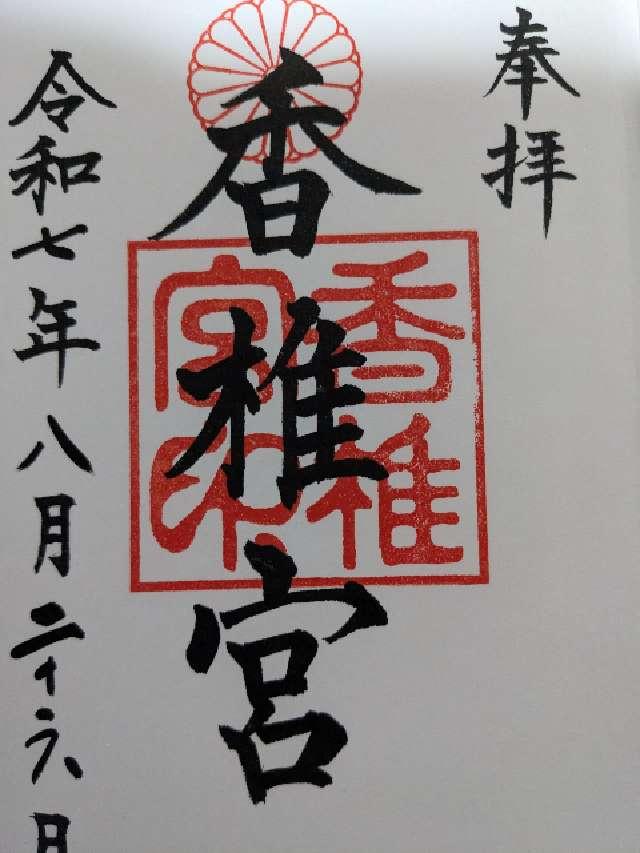 奉拝
香椎宮
香椎
宮印
令和七年八月二十六日